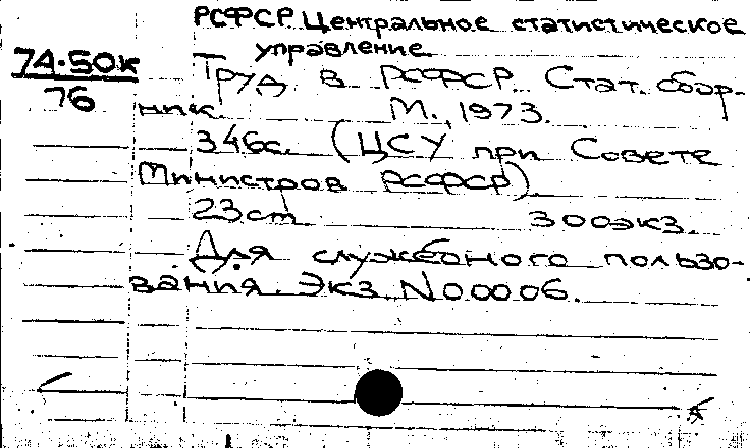 РСФСР. Центральное статистическое
управление
74-50к
76
Труд в РСФСР. Стат. сбор-
ник. М., 1973.
346с. (ЦСУ при Совете
Министров РСФСР).
23см 300экз.
Для служебного пользо-
вания. Экз. N00006.